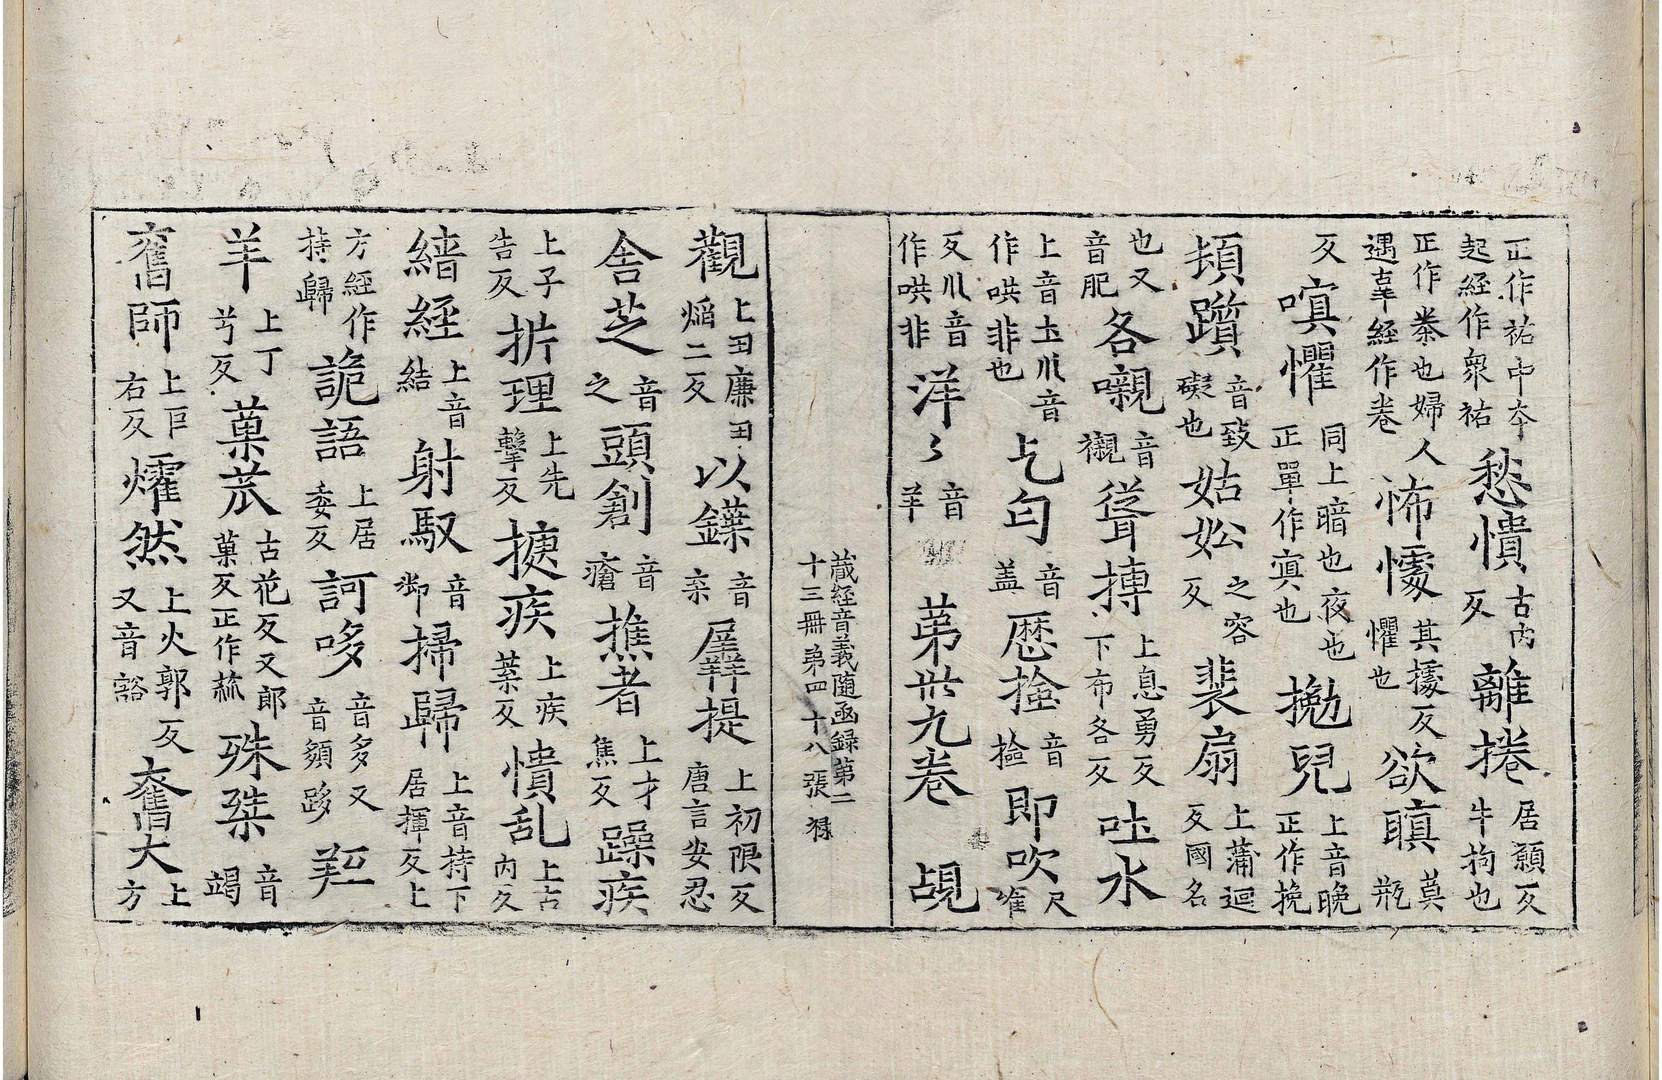 正作祐中夲起經作衆祐愁憒古内反離捲居願反牛拘也
正作桊也婦人遇𦍒經作卷怖懅其據反懼也欲瞋莫瓶
反嗔懼同上暗也夜也正單作寘也㧡兒上音晚正作挽
頻躓音致礙也姑妐之容反裴扇上蒲迴反國名
也又音肥各嚫音襯聳搏上息勇反下布各反吐水
上音土爪音作哄非也乞匄音盖歷撿音撿即吹尺唯
反爪音作哄非洋〻音羊 苐丗九卷 覘
藏經音義隨函録第二十三冊苐四十八張 禄
觀上丑廉丑焰二反以鑅音宗羼提上初限反唐言安忍
舍芝音之頭創音瘡撨者上才焦反躁疾
上子告反折理上先擊反㨗疾上疾葉反憒乱上古内反
縉經上音結射馭音御掃歸上音持下居揮反上
方經作持歸詭語上居委反訶哆音多又音頞跢羥
羊上丁兮反菓苽古花反又郎菓反正作蓏殊桀音竭
舊師上巨右反㸌然上火郭反又音豁奮大上方